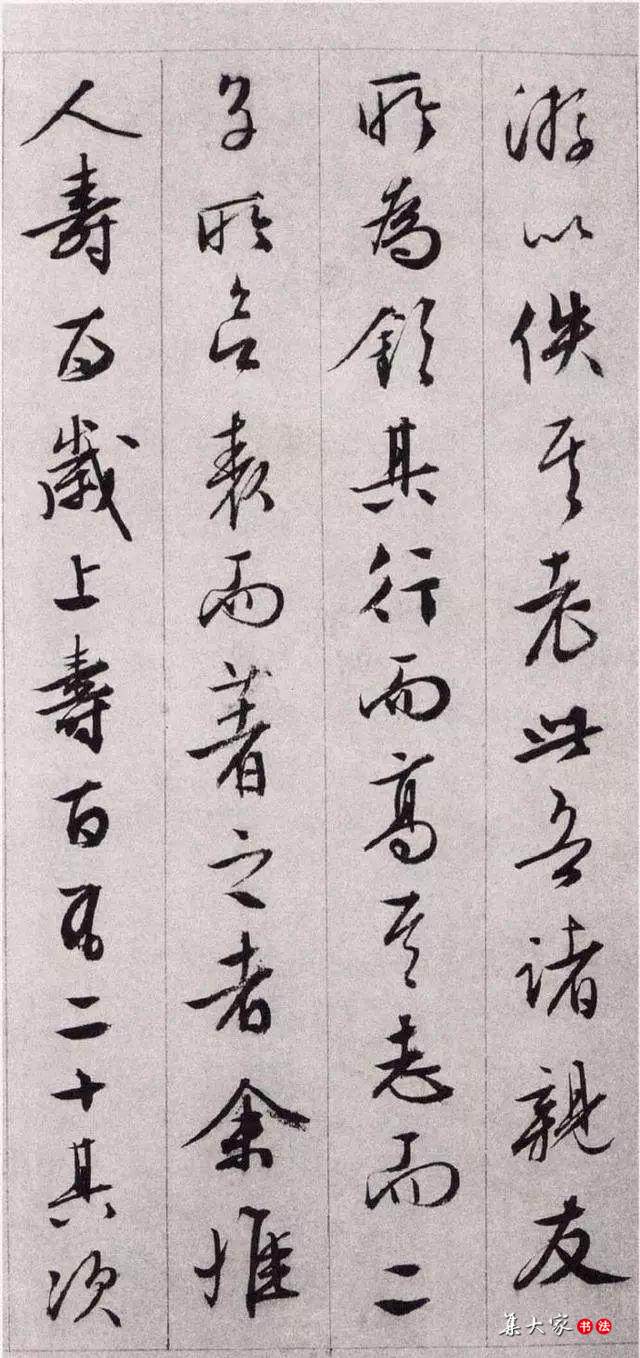 游以佚其老此吾諸親友
所為欽其行而高其志而二
子所宜表而著之者余惟
人壽百歲上壽百有二十其次
集大家书法